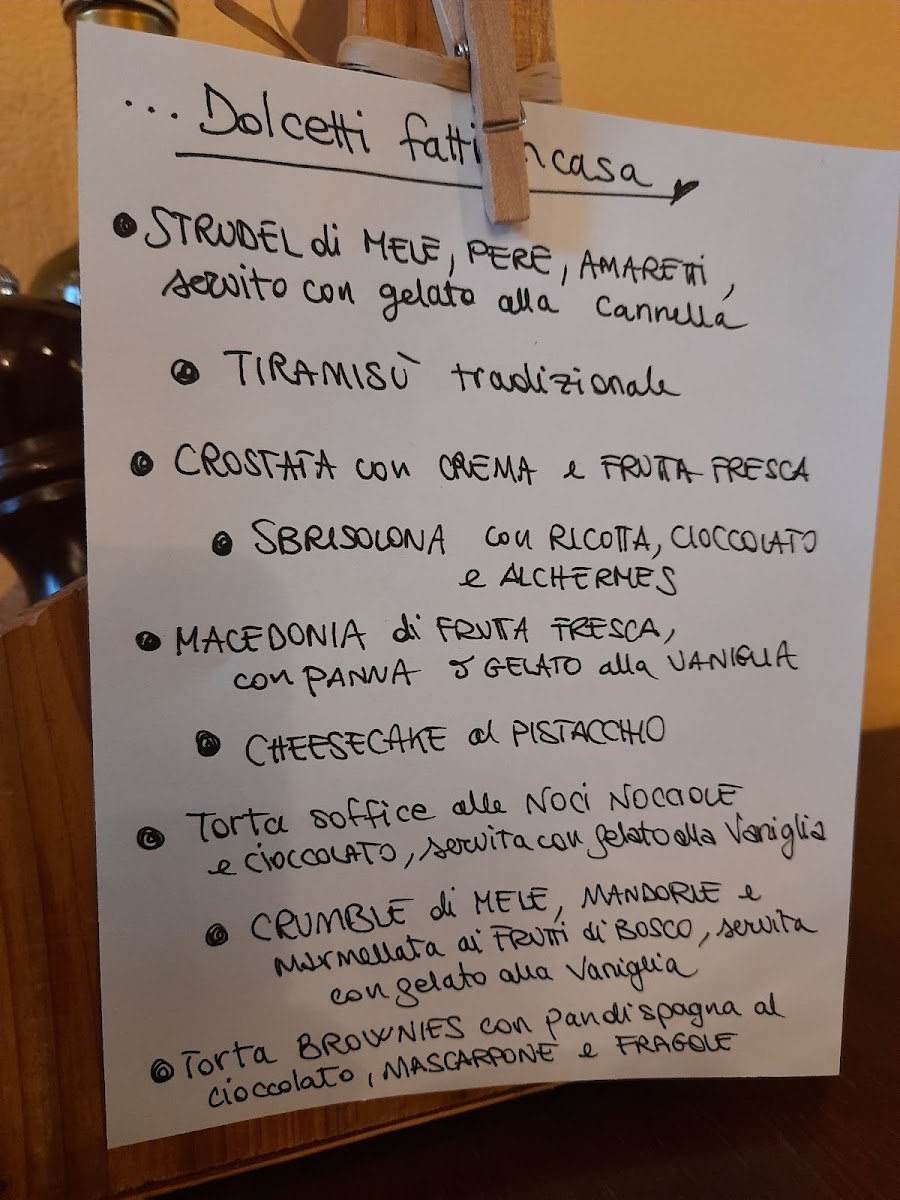 ... Dolcetti fatti in casa
• STRUDEL di MELE, PERE, AMARETTI,
servito con gelato alla Cannella
• TIRAMISÙ tradizionale
• CROSTATA con CREMA e FRUTTA FRESCA
• SBRISOLONA con RICOTTA, CIOCCOLATO
e ALCHERMES
• MACEDONIA di FRUTTA FRESCA,
con PANNA o GELATO alla VANIGLIA
• CHEESECAKE al PISTACCHIO
• Torta soffice alle NOCI NOCCIOLE
e CIOCCOLATO, servita con gelato alla Vaniglia
• CRUMBLE di MELE, MANDORLE e
Marmellata ai FRUTTI di BOSCO, servita
con gelato alla Vaniglia
• Torta BROWNIES con pandispagna al
cioccolato, MASCARPONE e FRAGOLE